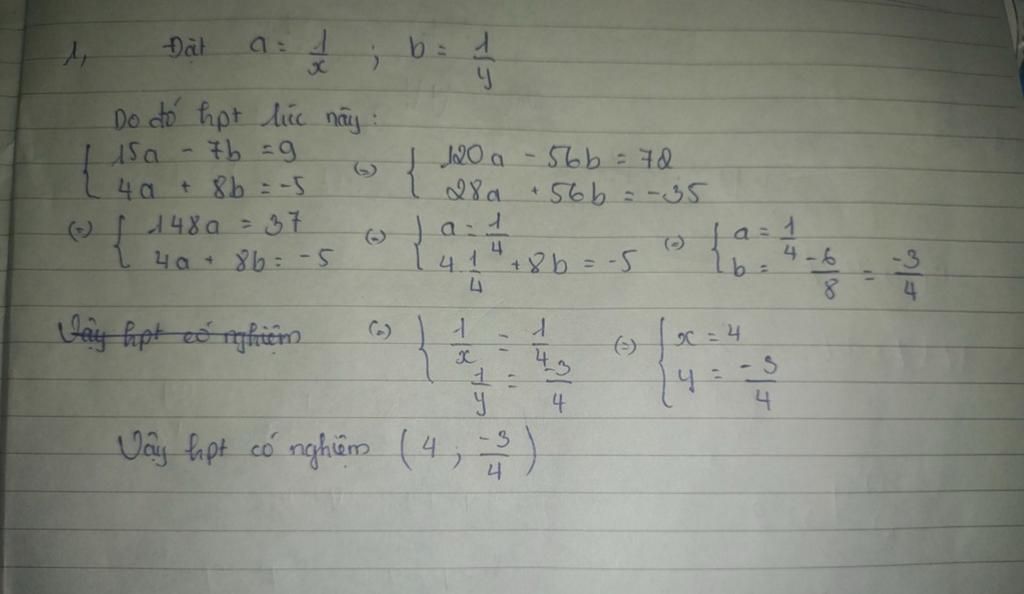 1, Đặt a = 1/x ; b = 1/y
Do đó hpt lúc này:
{ 15a - 7b = 9 (=) { 120a - 56b = 72
{ 4a + 8b = -5 { 28a + 56b = -35
(=) { 148a = 37 (=) { a = 1/4 (=) { a = 1/4
{ 4a + 8b = -5 { 4.1/4 + 8b = -5 { b = -6/8 = -3/4
Vậy hpt có nghiệm (=) { 1/x = 1/4 (=) { x = 4
{ 1/y = -3/4 { y = -3/4
Vậy hpt có nghiệm (4 ; -3/4)